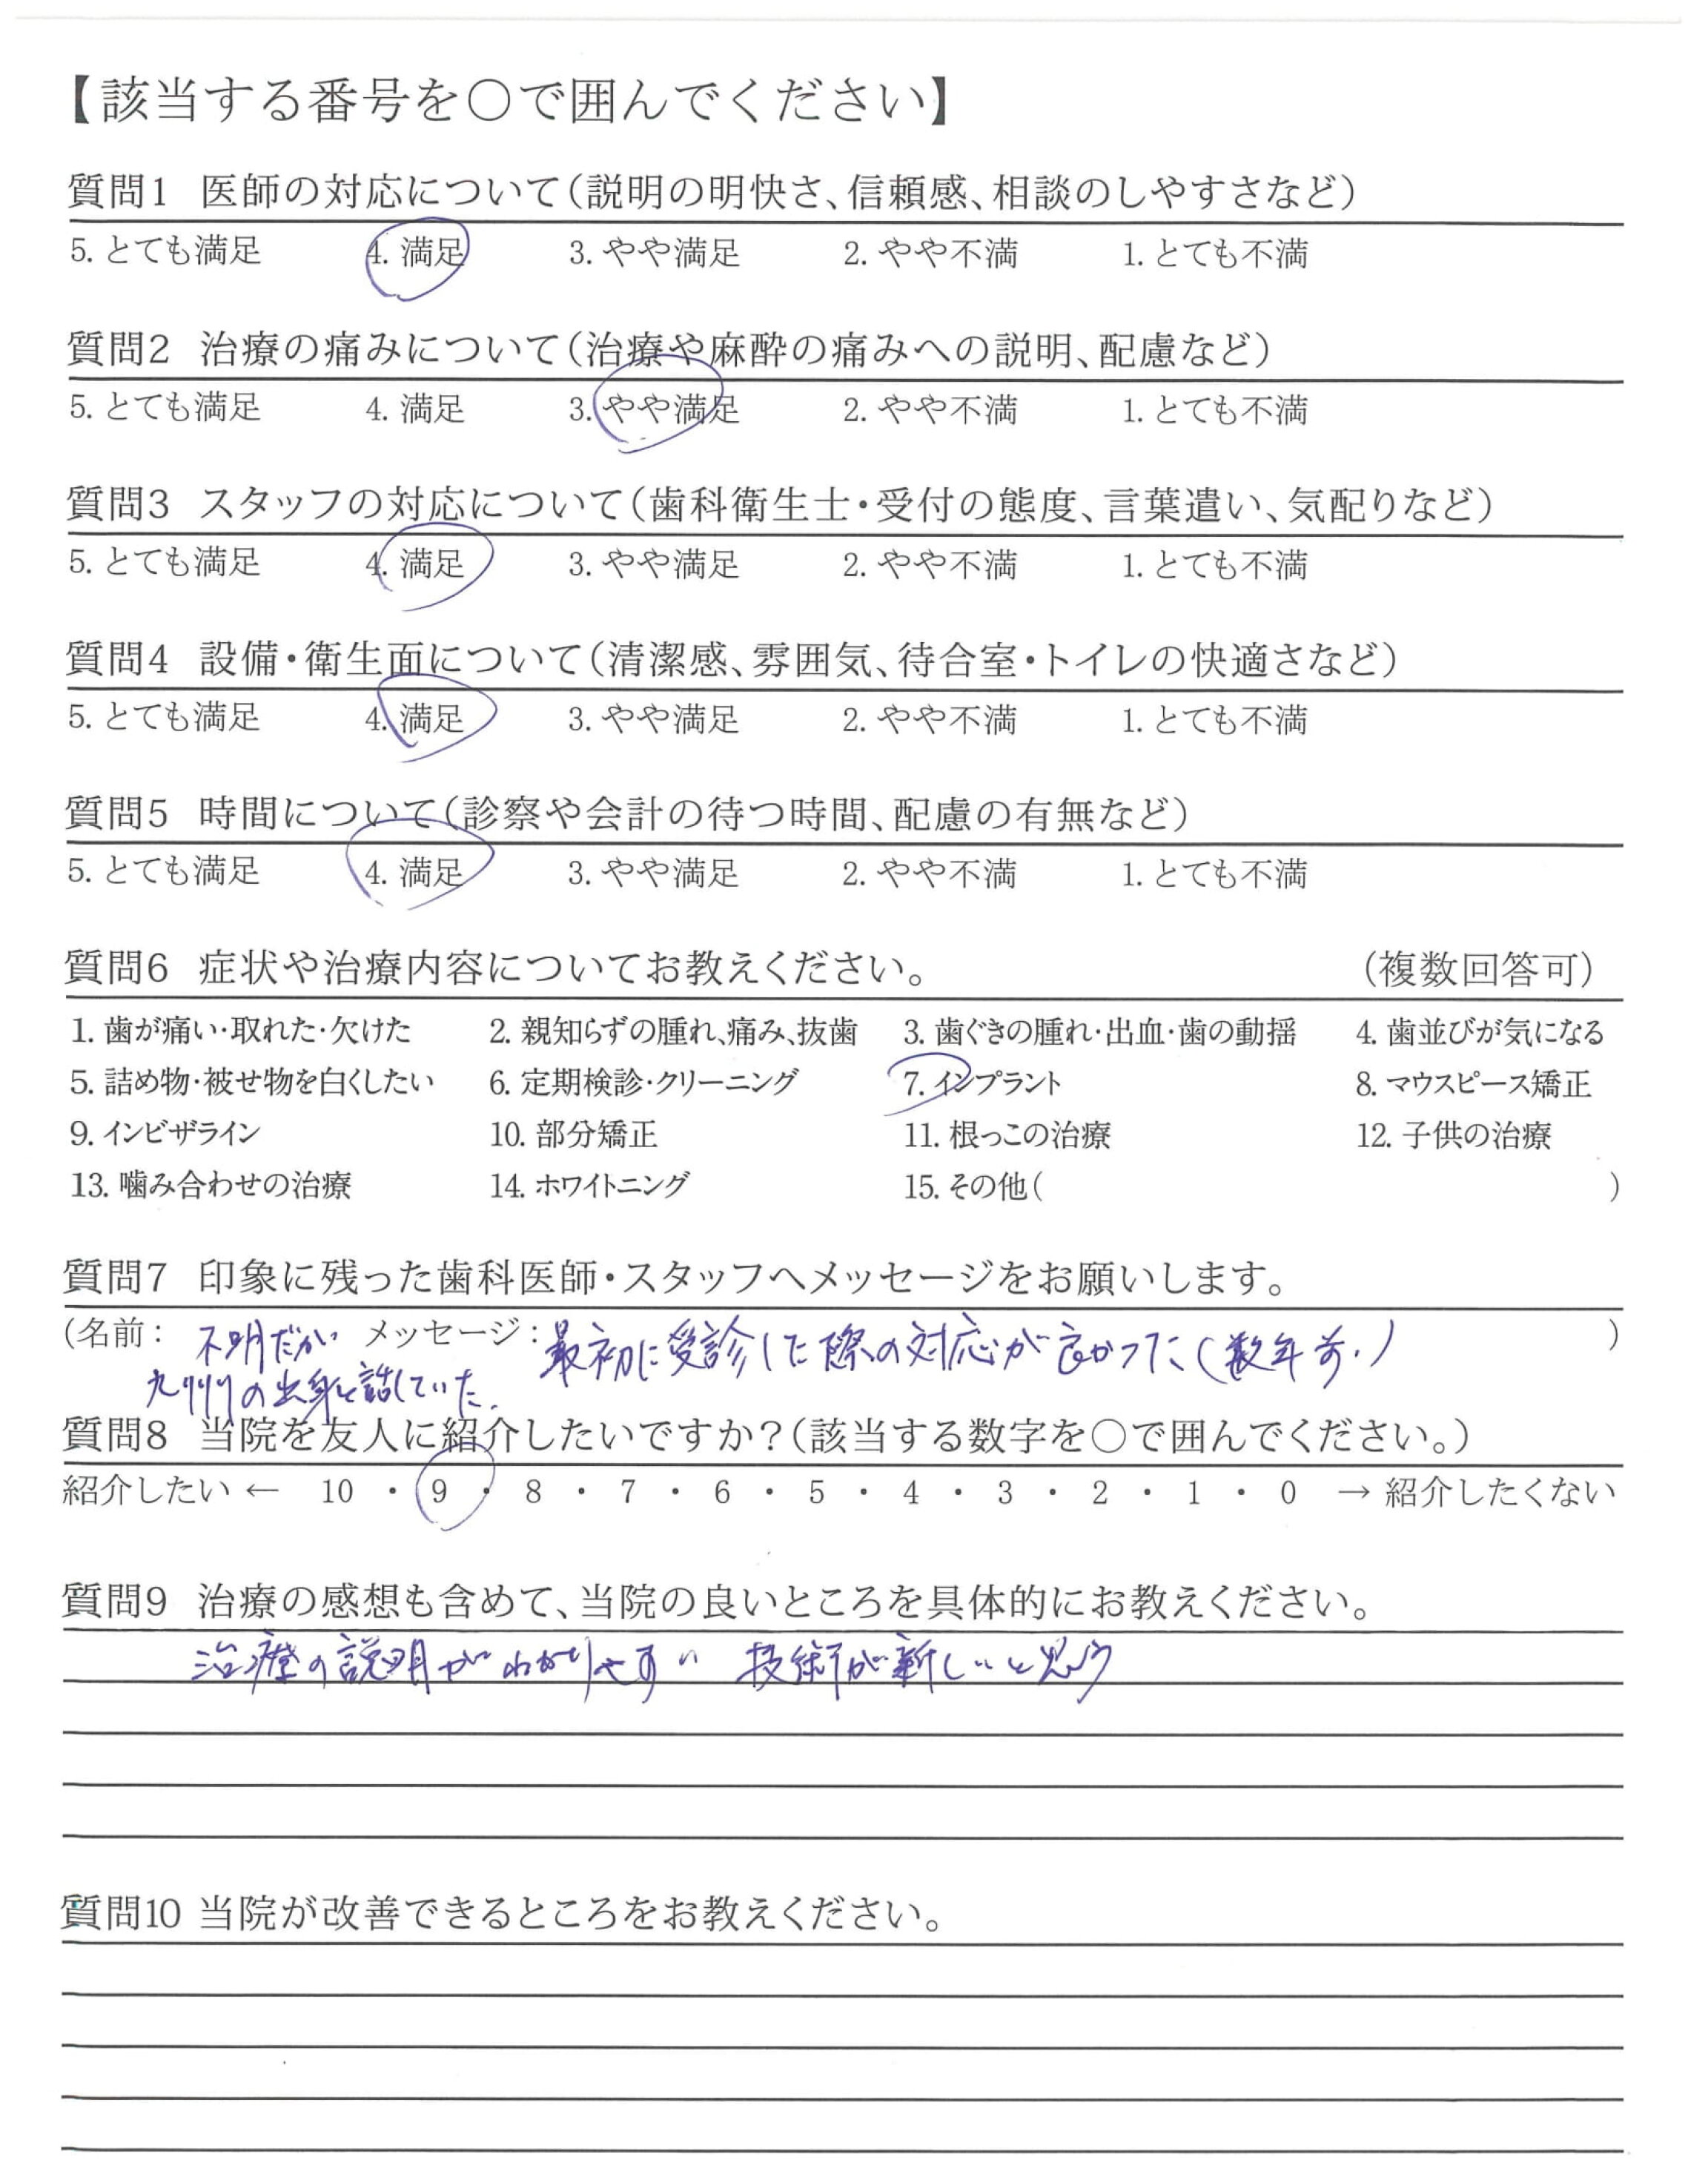 【該当する番号を〇で囲んでください】
質問1 医師の対応について(説明の明快さ、信頼感、相談のしやすさなど)
5. とても満足 4. 満足 3. やや満足 2. やや不満 1. とても不満
質問2 治療の痛みについて(治療や麻酔の痛みへの説明、配慮など)
5. とても満足 4. 満足 3. やや満足 2. やや不満 1. とても不満
質問3 スタッフの対応について(歯科衛生士・受付の態度、言葉遣い、気配りなど)
5. とても満足 4. 満足 3. やや満足 2. やや不満 1. とても不満
質問4 設備・衛生面について(清潔感、雰囲気、待合室・トイレの快適さなど)
5. とても満足 4. 満足 3. やや満足 2. やや不満 1. とても不満
質問5 時間について(診察や会計の待つ時間、配慮の有無など)
5. とても満足 4. 満足 3. やや満足 2. やや不満 1. とても不満
質問6 症状や治療内容についてお教えください。 (複数回答可)
1. 歯が痛い・取れた・欠けた 2. 親知らずの腫れ、痛み、抜歯 3. 歯ぐきの腫れ・出血・歯の動揺 4. 歯並びが気になる
5. 詰め物・被せ物を白くしたい 6. 定期検診・クリーニング 7. インプラント 8. マウスピース矯正
9. インビザライン 10. 部分矯正 11. 根っこの治療 12. 子供の治療
13. 噛み合わせの治療 14. ホワイトニング 15. その他( )
質問7 印象に残った歯科医師・スタッフへメッセージをお願いします。
(名前: 不明だが メッセージ: 最初に受診した際の対応が良かった(数年前) )
九州の出身と話していた.
質問8 当院を友人に紹介したいですか?(該当する数字を〇で囲んでください。)
紹介したい ← 10 ・ 9 ・ 8 ・ 7 ・ 6 ・ 5 ・ 4 ・ 3 ・ 2 ・ 1 ・ 0 → 紹介したくない
質問9 治療の感想も含めて、当院の良いところを具体的にお教えください。
治療の説明がわかりやすい 技術が新しいと思う
質問10 当院が改善できるところをお教えください。